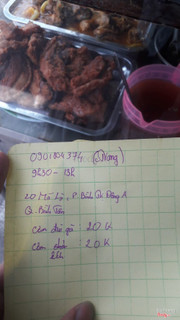 0901804374 (Dung)
9h30 - 13h
20 Mã Lò, P. Bình Trị Đông A
Q. Bình Tân
Cơm đùi gà : 20 K
Cơm : 20 K